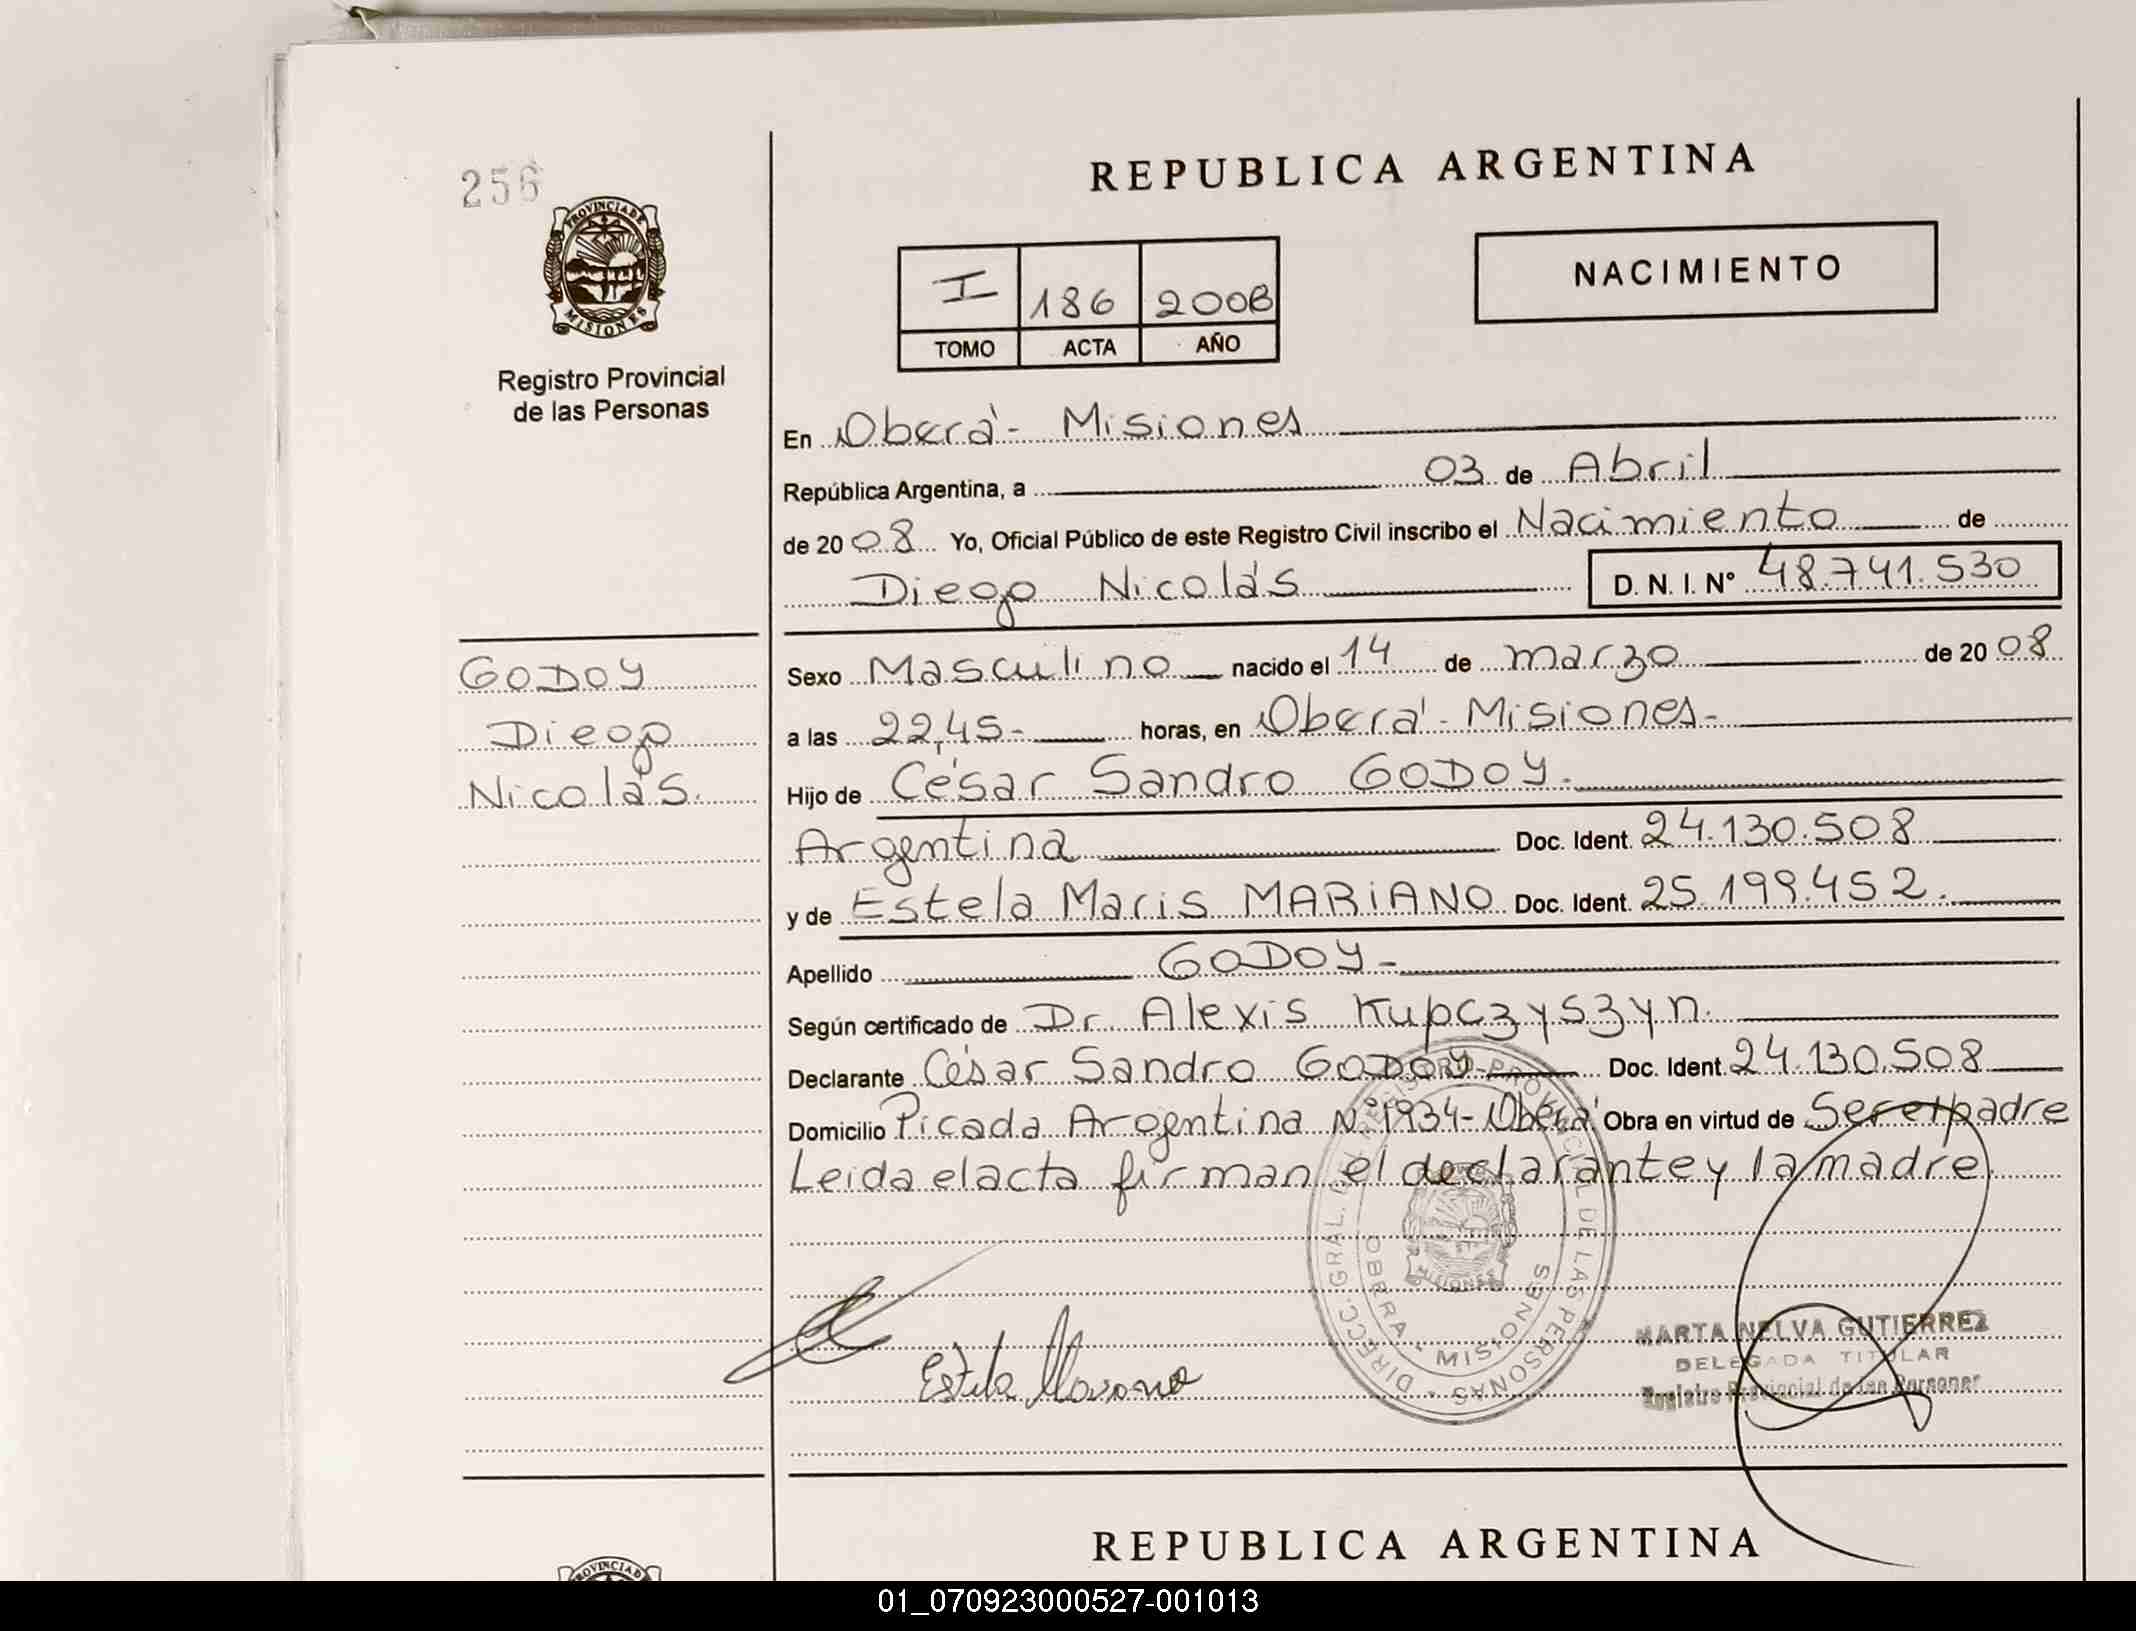 256
PROVINCIA DE
MISIONES
Registro Provincial
de las Personas
REPUBLICA ARGENTINA
NACIMIENTO
I 186 2008
TOMO ACTA AÑO
En Oberá - Misiones
República Argentina, a 03 de Abril
de 2008 Yo, Oficial Público de este Registro Civil inscribo el Nacimiento de
Diego Nicolás D. N. I. Nº 48.741.530
GODOY
Diego
Nicolás.
Sexo Masculino nacido el 14 de marzo de 2008
a las 22,45- horas, en Oberá - Misiones-
Hijo de César Sandro GODOY.
Argentina Doc. Ident. 24.130.508
y de Estela Maris MARIANO Doc. Ident. 25.199.452.
Apellido GODOY-
Según certificado de Dr. Alexis Kupczyszyn.
Declarante César Sandro GODOY- Doc. Ident. 24.130.508
Domicilio Picada Argentina Nº 1934- Oberá Obra en virtud de Ser el padre
Leida el acta firman el declarante y la madre
DIRECC. GRAL. DEL REGISTRO PROVINCIAL DE LAS PERSONAS
OBERA - MISIONES
MISIONES
Estela
MARTA NELVA GUTIERREZ
DELEGADA TITULAR
Registro Provincial de las Personas
REPUBLICA ARGENTINA
01_070923000527-001013